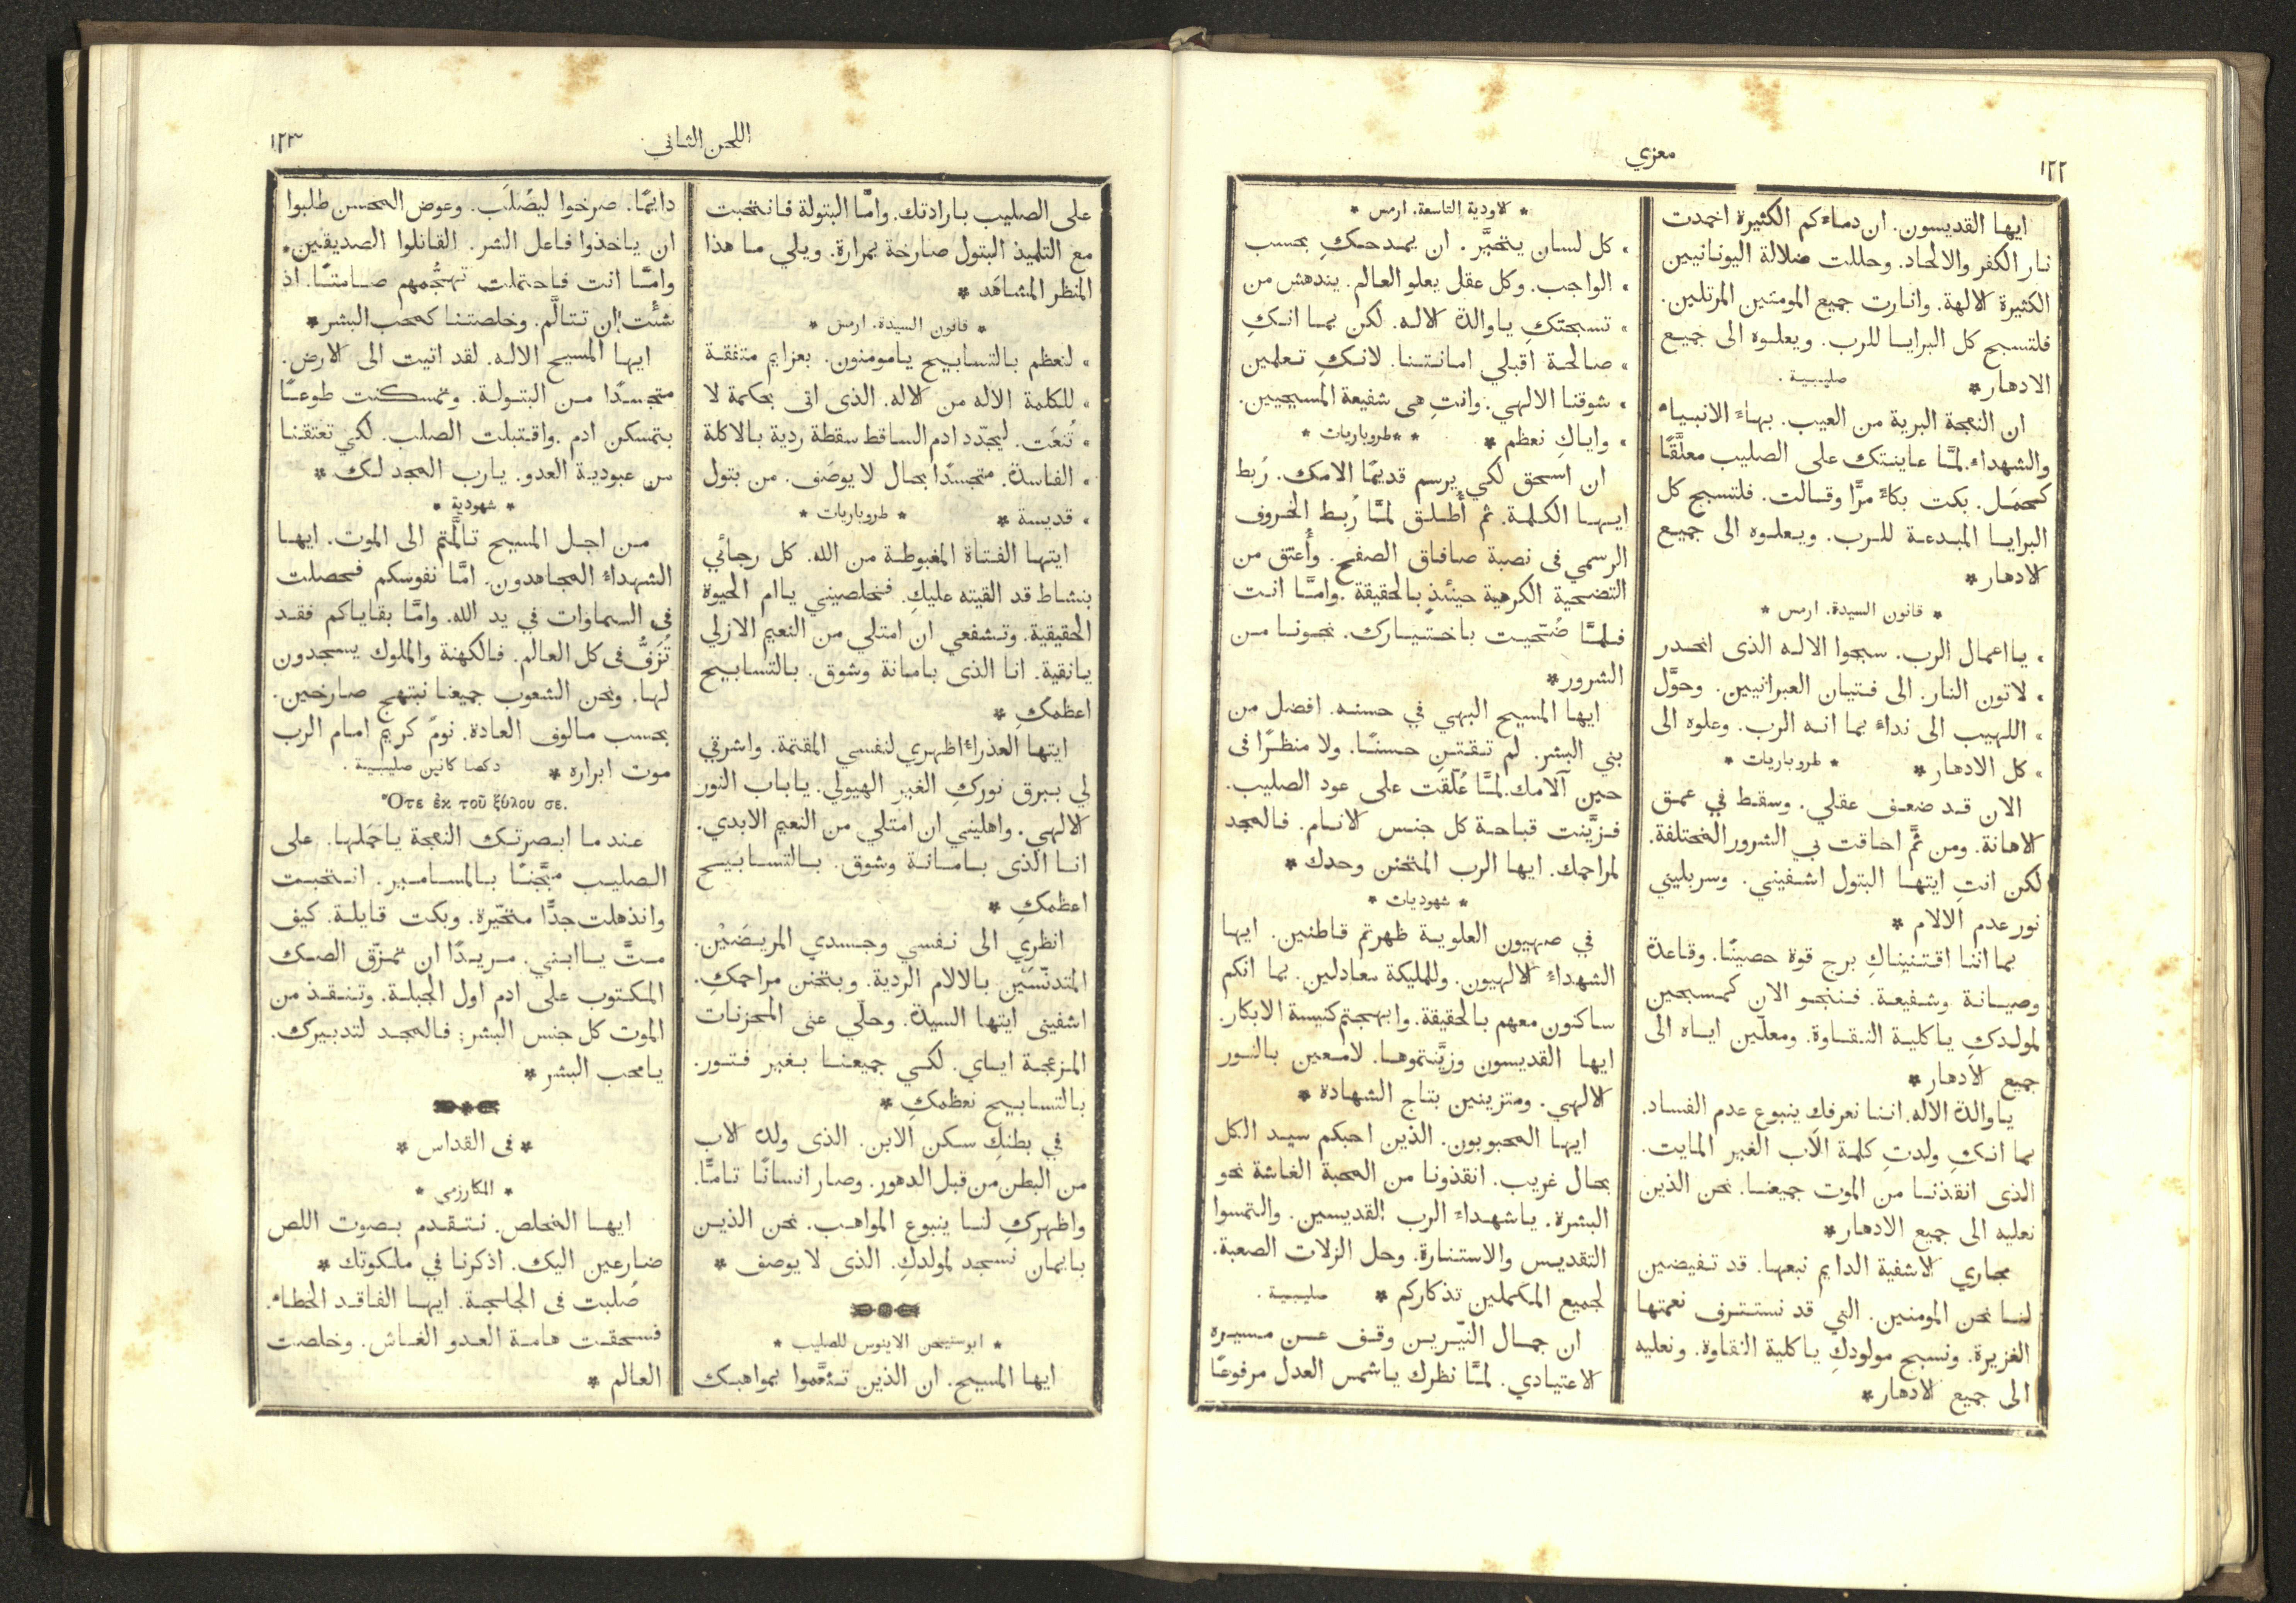 ١٢٢
معزي
ايها القديسون. ان دماءكم الكثيرة اخمدت
نار الكفر والالحاد. وحللت ضلالة اليونانيين
الكثيرة الالهة. وانارت جميع المومنين المرتلين.
فلتسبح كل البرايا للرب. ويعلوه الى جميع
الادهار * صليبية .
ان النعجة البرية من العيب. بهاء الانبياء
والشهداء. لمَّا عاينتك على الصليب معلَّقًا
كحمَل. بكت بكاءً مرًّا وقالت. فلتسبح كل
البرايا المبدعة للرب. ويعلوه الى جميع
الادهار *
* قانون السيدة. ارمس *
، يااعمال الرب. سبحوا الاله الذى انحدر
، لاتون النار. الى فتيان العبرانيين. وحوَّل
، اللهيب الى نداءٍ بما انه الرب. وعلوه الى
، كل الادهار * * طروباريات *
الان قد ضعف عقلي. وسقط في عمق
الاهانة. ومن ثَمَّ احاقت بي الشرور المختلفة.
لكن انتِ ايتها البتول اشفيني. وسربليني
نور عدم الالام *
بما اننا اقتنيناكِ برج قوة حصينًا. وقاعدة
وصيانة وشفيعة. فننجو الان كمسبحين
لمولدكِ ياكلية النقاوة. ومعلّين اياه الى
جميع الادهار *
ياوالدة الاله. اننا نعرفكِ ينبوع عدم الفساد.
بما انكِ ولدتِ كلمة الآب الغير المايت.
الذى انقذنا من الموت جميعنا. نحن الذين
نعليه الى جميع الادهار *
مجاري الاشفية الدايم نبعها. قد تفيضين
لنا نحن المومنين. التي قد نستترف نعمتها
الغزيرة. ونسبح مولودكِ ياكلية النقاوة. ونعليه
الى جميع الادهار *
* الاودية التاسعة. ارمس *
، كل لسان يتحيَّر . ان يمدحكِ بحسب
، الواجب. وكل عقل يعلو العالم. يندهش من
، تسبحتكِ ياوالدة الاله. لكن بما انكِ
، صالحة اقبلي امانتنا. لانكِ تعلمين
، شوقنا الالهي. وانتِ هى شفيعة المسيحيين.
، واياكِ نعظم * * طروباريات *
ان اسحق لكي يرسم قديمًا الامك. رُبط
ايها الكلمة. ثم أُطلق لمَّا رُبط الخروف
الرسمي فى نصبة صافاق الصفح. وأُعتق من
التضحية الكرهية حينئذٍ بالحقيقة. وامَّا انت
فلمَّا ضُحّيت باختيارك. نجونا من
الشرور *
ايها المسيح البهي في حسنه. افضل من
بني البشر. لم تقتنِ حسنًا. ولا منظرًا فى
حين آلامك. لمَّا عُلّقت على عود الصليب.
فزيَّنت قباحة كل جنس الانام. فالمجد
لمراحمك. ايها الرب المتحنن وحدك *
* شهوديات *
في صهيون العلوية ظهرتم قاطنين. ايها
الشهداء الالهيون. وللمليكة معادلين. بما انكم
ساكنون معهم بالحقيقة. وابهجتم كنيسة الابكار.
ايها القديسون وزيَّنتموها. لامعين بالنور
الالهي. ومتزينين بتاج الشهادة *
ايها المحبوبون. الذين احبكم سيد الكل
بحال غريب. انقذونا من المحبة الغاشة نحو
البشرة. ياشهداء الرب القديسين. والتمسوا
التقديس والاستنارة. وحل الزلات الصعبة.
لجميع المكملين تذكاركم * صليبية .
ان جمال النيّرين وقف عن مسيره
الاعتيادي. لمَّا نظرك ياشمس العدل مرفوعًا
اللحن الثاني
١٢٣
على الصليب بارادتك. وامَّا البتولة فانتحبت
مع التلميذ البتول صارخة بمرارة. ويلي ما هذا
المنظر المشاهَد *
* قانون السيدة. ارمس *
، لنعظم بالتسابيح يامومنون. بعزايم متفقة
، للكلمة الاله من الاله. الذى اتى بحكمة لا
، تُنعَت. ليجدّد ادم الساقط سقطة ردية بالاكلة
، الفاسدة. متجسدًا بحال لا يوصَف. من بتول
، قديسة * * طروباريات *
ايتها الفتاة المغبوطة من الله. كل رجائي
بنشاط قد القيته عليكِ. فخلصيني ياام الحيوة
الحقيقية. وتشفعي ان امتلي من النعيم الازلي
يانقية. انا الذى بامانة وشوق. بالتسابيح
اعظمكِ *
ايتها العذراء اظهري لنفسي المقتمة. واشرقي
لي ببرق نوركِ الغير الهيولي. ياباب النور
الالهي. واهليني ان امتلي من النعيم الابدي.
انا الذى بامانة وشوق. بالتسابيح
اعظمكِ *
انظري الى نفسي وجسدي المريضَيْن.
المتدنّسَيْن بالالام الردية. وبتحنن مراحمكِ.
اشفينى ايتها السيدة. وحلّي عنى المحزنات
المزعجة اياي. لكي جميعنا بغير فتور.
بالتسابيح نعظمكِ *
في بطنكِ سكن الابن. الذى ولده الاب
من البطن من قبل الدهور. وصار انسانًا تامًّا.
واظهركِ لنا ينبوع المواهب. نحن الذين
بايمان نسجد لمولدكِ. الذى لا يوصف *
* ابوستيحن الاينوس للصليب *
ايها المسيح. ان الذين تنعَّموا بمواهبك
دايمًا. صرخوا ليصُلَب. وعوض المحسن طلبوا
ان ياخذوا فاعل الشر. القاتلوا الصديقين.
وامَّا انت فاحتملت تهجُّمهم صامتًا. اذ
شئت ان تتالَّم. وخلصتنا كمحب البشر *
ايها المسيح الاله. لقد اتيت الى الارض.
متجسدًا من البتولة. وتمسكنت طوعًا
بتمسكن ادم. واقتبلت الصلب. لكي تعتقنا
من عبودية العدو. يارب المجد لك *
* شهودية *
من اجل المسيح تالَّمتم الى الموت. ايها
الشهداء المجاهدون. امَّا نفوسكم فحصلت
فى السماوات في يد الله. وامَّا بقاياكم فقد
تُزَفُّ فى كل العالم. فالكهنة والملوك يسجدون
لها. ونحن الشعوب جميعنا نبتهج صارخين.
بحسب مالوف العادة. نومٌ كريم امام الرب
موت ابراره * دكصا كانين صليبية .
Ὅτε ἐκ τοῦ ξύλου σε.
عند ما ابصرتك النعجة ياحَمَلها. على
الصليب مجَّنًا بالمسامير. انتحبت
وانذهلت جدًّا متحيّرة. وبكت قايلة. كيف
متَّ ياابني. مريدًا ان تمزّق الصك
المكتوب على ادم اول الجبلة. وتنقذ من
الموت كل جنس البشر: فالمجد لتدبيرك.
يامحب البشر *
* فى القداس *
* المكارزمى *
ايها المخلص. نتقدم بصوت اللص
ضارعين اليك. اذكرنا في ملكوتك *
صُلبت فى الجلجة. ايها الفاقد الخطاء.
فسحقت هامة العدو الغاش. وخلصت
العالم *